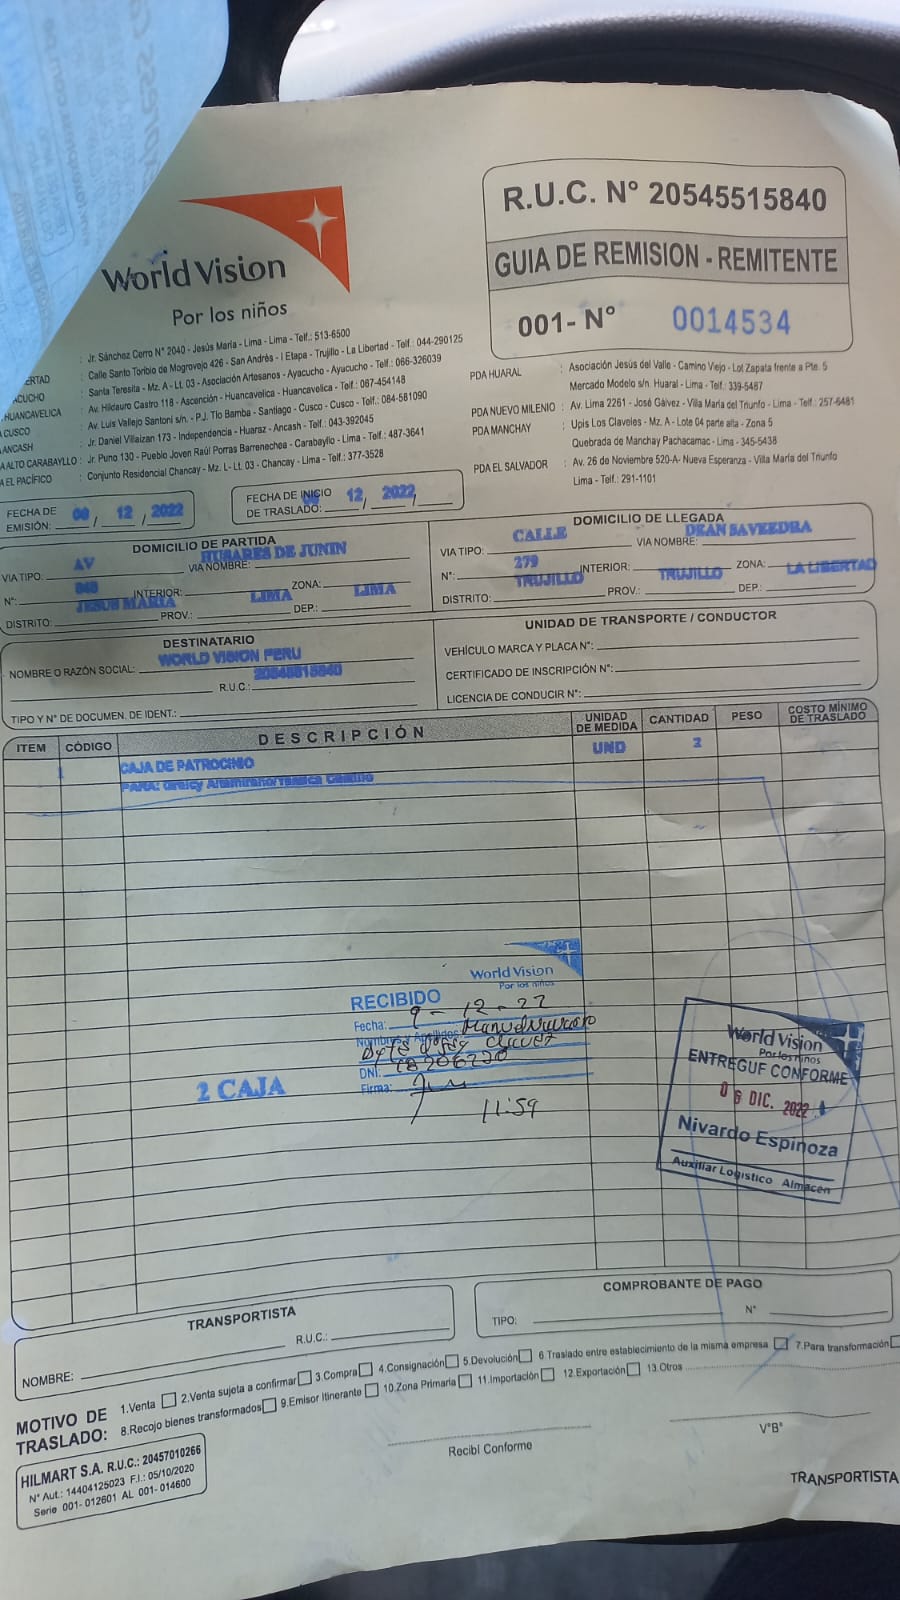 World Vision
Por los niños
R.U.C. N° 20545515840
GUIA DE REMISION - REMITENTE
001- N° 0014534
: Jr. Sánchez Cerro N° 2040 - Jesús María - Lima - Lima - Telf.: 513-6500
ERTAD : Calle Santo Toribio de Mogrovejo 426 - San Andrés - I Etapa - Trujillo - La Libertad - Telf.: 044-290125
ACUCHO : Santa Teresita - Mz. A - Lt. 03 - Asociación Artesanos - Ayacucho - Ayacucho - Telf.: 066-326039
HUANCAVELICA : Av. Hildauro Castro 118 - Ascención - Huancavelica - Huancavelica - Telf.: 067-454148
A CUSCO : Av. Luis Vallejo Santoni s/n. - P.J. Tío Bamba - Santiago - Cusco - Cusco - Telf.: 084-581090
ANCASH : Jr. Daniel Villaizan 173 - Independencia - Huaraz - Ancash - Telf.: 043-392045
A ALTO CARABAYLLO : Jr. Puno 130 - Pueblo Joven Raúl Porras Barrenechea - Carabayllo - Lima - Telf.: 487-3641
A EL PACÍFICO : Conjunto Residencial Chancay - Mz. L - Lt. 03 - Chancay - Lima - Telf.: 377-3528
PDA HUARAL : Asociación Jesús del Valle - Camino Viejo - Lot Zapata frente a Pte. 5
Mercado Modelo s/n. Huaral - Lima - Telf.: 339-5487
PDA NUEVO MILENIO : Av. Lima 2261 - José Gálvez - Villa María del Triunfo - Lima - Telf.: 257-6481
PDA MANCHAY : Upis Los Claveles - Mz. A - Lote 04 parte alta - Zona 5
Quebrada de Manchay Pachacamac - Lima - 345-5438
PDA EL SALVADOR : Av. 26 de Noviembre 520-A- Nueva Esperanza - Villa María del Triunfo
Lima - Telf.: 291-1101
FECHA DE EMISIÓN: / 12 / 2022
FECHA DE INICIO DE TRASLADO: 12 / 2022
DOMICILIO DE PARTIDA
VIA TIPO: AV VIA NOMBRE: HUSARES DE JUNIN
N°: INTERIOR: ZONA:
DISTRITO: JESUS MARIA PROV.: LIMA DEP.: LIMA
DOMICILIO DE LLEGADA
VIA TIPO: CALLE VIA NOMBRE: DEAN SAVEEDRA
N°: 279 INTERIOR: ZONA:
DISTRITO: TRUJILLO PROV.: TRUJILLO DEP.: LA LIBERTAD
DESTINATARIO
NOMBRE O RAZÓN SOCIAL: WORLD VISION PERU
R.U.C.: 20545515840
TIPO Y N° DE DOCUMEN. DE IDENT.:
UNIDAD DE TRANSPORTE / CONDUCTOR
VEHÍCULO MARCA Y PLACA N°:
CERTIFICADO DE INSCRIPCIÓN N°:
LICENCIA DE CONDUCIR N°:
ITEM CÓDIGO DESCRIPCIÓN UNIDAD DE MEDIDA CANTIDAD PESO COSTO MÍNIMO DE TRASLADO
1 CAJA DE PATROCINIO UND 2
PARA: Greicy Altamirano/
World Vision
Por los niños
RECIBIDO
Fecha: 9 - 12 - 22
Nombres y Apellidos:
DNI:
Firma:
11:59
2 CAJA
World Vision
Por los niños
ENTREGUE CONFORME
0 6 DIC. 2022
Nivardo Espinoza
Auxiliar Logístico Almacén
TRANSPORTISTA
R.U.C.:
NOMBRE:
COMPROBANTE DE PAGO
TIPO: N°
MOTIVO DE TRASLADO:
1.Venta 2.Venta sujeta a confirmar 3.Compra 4.Consignación 5.Devolución 6.Traslado entre establecimiento de la misma empresa 7.Para transformación
8.Recojo bienes transformados 9.Emisor Itinerante 10.Zona Primaria 11.Importación 12.Exportación 13.Otros
HILMART S.A. R.U.C.: 20457010266
N° Aut.: 14404125023 F.I.: 05/10/2020
Serie 001- 012601 AL 001- 014600
Recibí Conforme
V°B°
TRANSPORTISTA